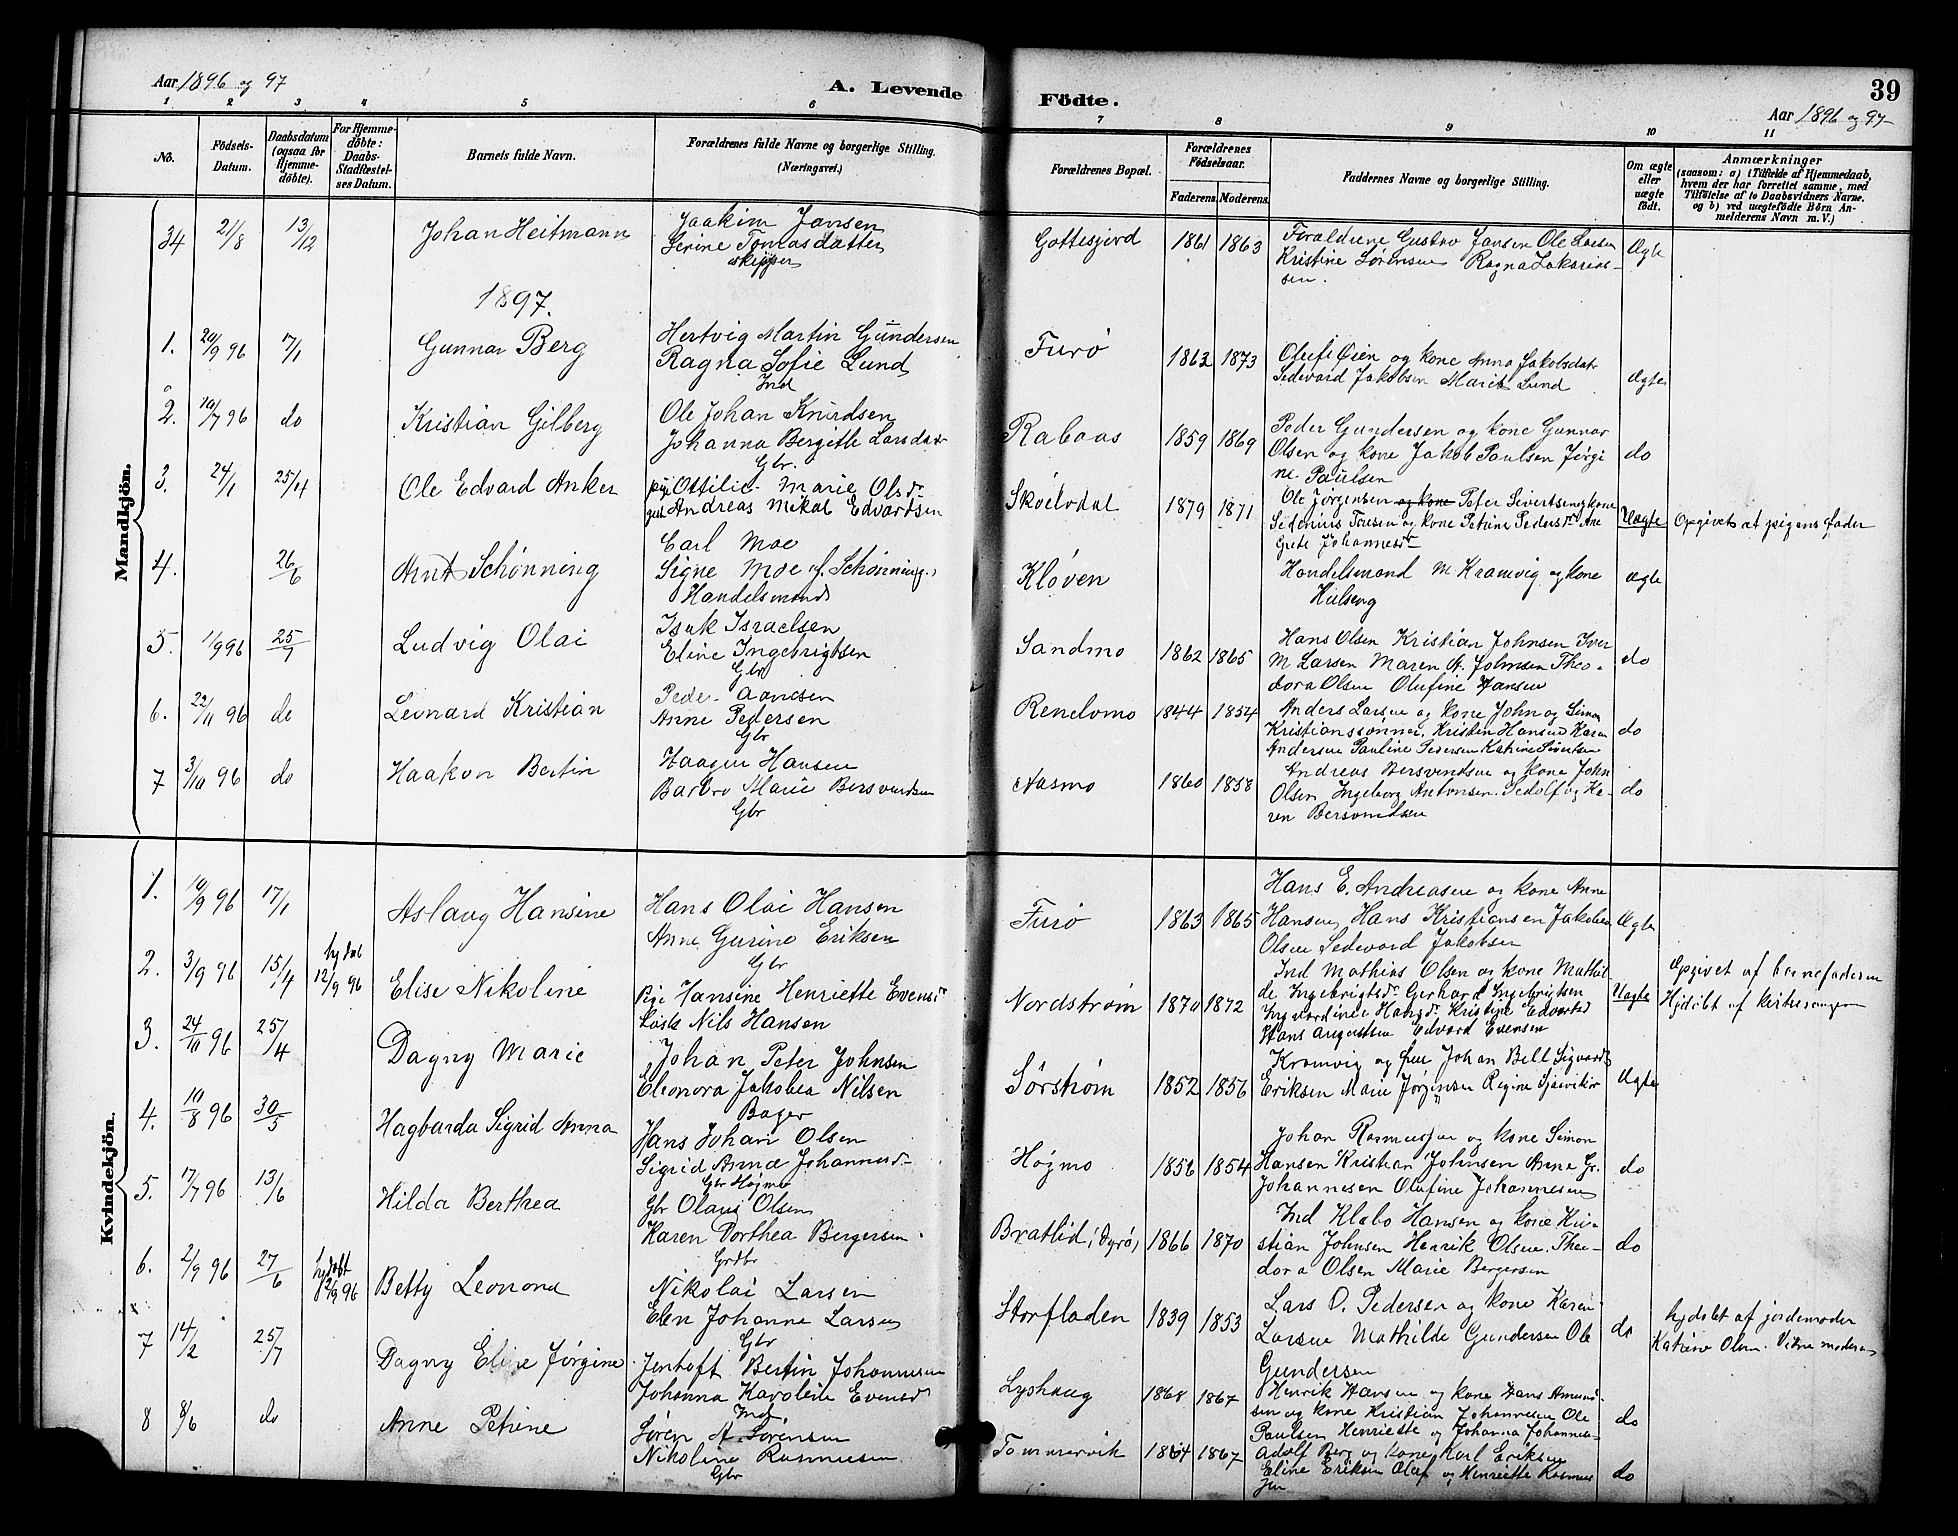 Aar 1896 og 97
A. Levende
Födte.
39
Aar 1896 og 97
1 2 3 4 5 6 7 8 9 10 11
No.
Födsels-Datum.
Daabsdatum (ogsaa for Hjemme-döbte).
For Hjemme-döbte: Daabs-Stadfæstel-ses Datum.
Barnets fulde Navn.
Forældrenes fulde Navne og borgerlige Stilling.
(Næringsvei.)
Forældrenes Bopæl.
Forældrenes Födselsaar.
Faderens. Moderens.
Faddernes Navne og borgerlige Stilling.
Om ægte eller uægte födt.
Anmærkninger
(saasom: a) i Tilfælde af Hjemmedaab,
hvem der har forrettet samme, med
Tilföielse af to Daabsvidners Navne,
og b) ved uægtefödte Börn An-
melderens Navn m. V.)
Mandkjön.
34 21/8 13/12 Johan Heitmann
Joakim Jansen
Serine Tomasdatter
skipper
Gottesjord 1861 1863
Forældrene Gustav Jansen Ole Larsen
Kristine Sørensen Ragna Zakarias-
sen.
Ægte
1897.
1. 20/9 96 17/1 Gunnar Berg
Hertvig Martin Gundersen
Ragna Sofie Lund
Ind
Furø 1863 1873
Olufi Øien og kone Anna Jakobsdatr
Sedevard Jakobsen Marie Lund
Ægte
2. 10/7 96 do Kristian Gilberg
Ole Johan Knudsen
Johanna Bergitte Larsdatr
Gbr.
Rabaas 1859 1869
Peder Gundersen og kone Gunnar
Olsen og kone Jakob Paulsen Jørgi
ne Paulsen
do
3. 24/1 25/4 Ole Edvard Anker
pige Ottilie Marie Olsdr
Andreas Mikal Edvardsen
Skoelvdal 1879 1871
Ole Jørgensen og kone Peter Sivertsen og kone
og kone Petrine Pedersdr Ane
Grete Johannesdr
Uægte
Opgivet at pigens fader
4. 26/6 Arnt Schønning
Carl Moe
Signe Moe f. Schønning.
Handelsmand
Kløven
Handelsmand M Kramvig og kone
ægte
5. 1/9 96 25/7 Ludvig Olai
Isak Israelsen
Eline Ingebrigtsen
Gbr
Sandmo 1862 1865
Hans Olsen Kristian Johnsen Iver
M Larsen Maren A. Johnsen Theo-
dora Olsen Olufine Hansen
do
6. 22/11 96 do Leonard Kristian
Peder Aanesen
Anne Pedersen
Gbr
Renelvmo 1844 1854
Anders Larsen og kone John og Simon
Kristianssønner, Kristen Hansen Karen
Andersen Pauline Pedersen Katrine Sivertsen
do
7 3/10 96 do Haakon Bertin
Haagen Hansen
Barbro Marie Bersvendsen
Gbr
Aasmo 1860 1858
Andreas Bersvendsen og kone John
Olsen Ingeborg Antonsen. Sedolf og Ka-
ren Bersvendsen
do
Kvindekjön.
1. 10/9 96 17/1 Aslaug Hansine
Hans Olai Hansen
Anne Gurine Eriksen
Gbr
Furø 1863 1865
Hans E. Andreasen og kone Anne
Hansen, Hans Kristiansen Jakobea
Olsen Sedevard Jakobsen
Ægte
2. 3/9 96 15/4 hjdøbt 12/9 96 Elise Nikoline
Pige Hansine Henriette Evensdr
Løsk Nils Hansen
Nordstrøm 1870 1872
Ind Mathias Olsen og kone Mathil-
de Ingebrigtsdr Gerhard Ingebrigtsen
Ingvardine Hansdr Kristine Edvardsd
Hans Augustsen Edvard Evensen
Uægte
Opgivet af barnefaderen
Hjdøbt af kirkesanger
3. 24/10 96 25/4 Dagny Marie
Johan Peter Johnsen
Eleonora Jakobea Nilsen
Bager
Sørstrøm 1852 1856
Kramvig og frue Johan Bell Sigvard
Eriksen Marie Jørgensen Regine
Ægte
4. 10/8 96 30/5 Hagbarda Sigrid Anna
Hans Johan Olsen
Sigrid Anna Johannesdr
Gbr Højmo
Højmo 1856 1854
Johan Rasmussen og kone Simon
Hansen Kristian Johnsen Anne Gr.
Johannesen Olufine Johannesen
do
5. 17/7 96 13/6 Hilda Berthea
Gbr Olaus Olsen
Karen Dorthea Bergersen
Grdbr
Bratlid, (Dyrø) 1866 1870
Ind Klabo Hansen og kone Kri-
stian Johnsen Henrik Olsen. Theo-
dora Olsen Marie Bergersen
do
6. 2/9 96 27/6 hjdøbt 12/9 96 Betty Leonora
Nikolai Larsen
Elen Johanne Larsen
Gbr
Storfladen 1839 1853
Lars O. Pedersen og kone Karen
Larsen Mathilde Gundersen Ole
Gundersen
do
hjdøbt af jordemoder
Katrine Olsen. Vitne moderen
7 14/2 25/7 Dagny Eline Jørgine
Jentoft Bertin Johannesen
Johanna Karoleite Evensd
Ind
Lyshaug 1868 1867
Henrik Hansen og kone Hans Amund-
sen og kone Kristian Johannesen Ole
Paulsen Henriette og Johanna Johannesen
do
8 8/6 do Anne Petrine
Søren A. Sørensen
Nikoline Rasmussen
Gbr
Tommervik 1864 1867
Adolf Berg og kone Karl Eriksen
Eline Eriksen Olaf og Henriette Rasmus
sen
do